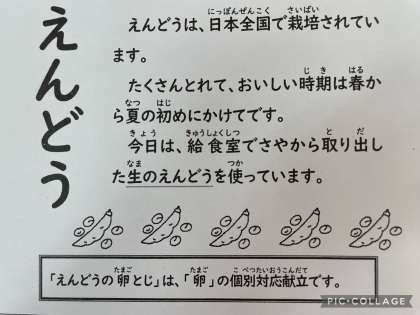 えんどう
えんどうは、日本全国で栽培されてい
ます。
たくさんとれて、おいしい時期は春か
ら夏の初めにかけてです。
今日は、給食室でさやから取り出し
た生のえんどうを使っています。
「えんどうの卵とじ」は、「卵」の個別対応献立です。
PIC・COLLAGE